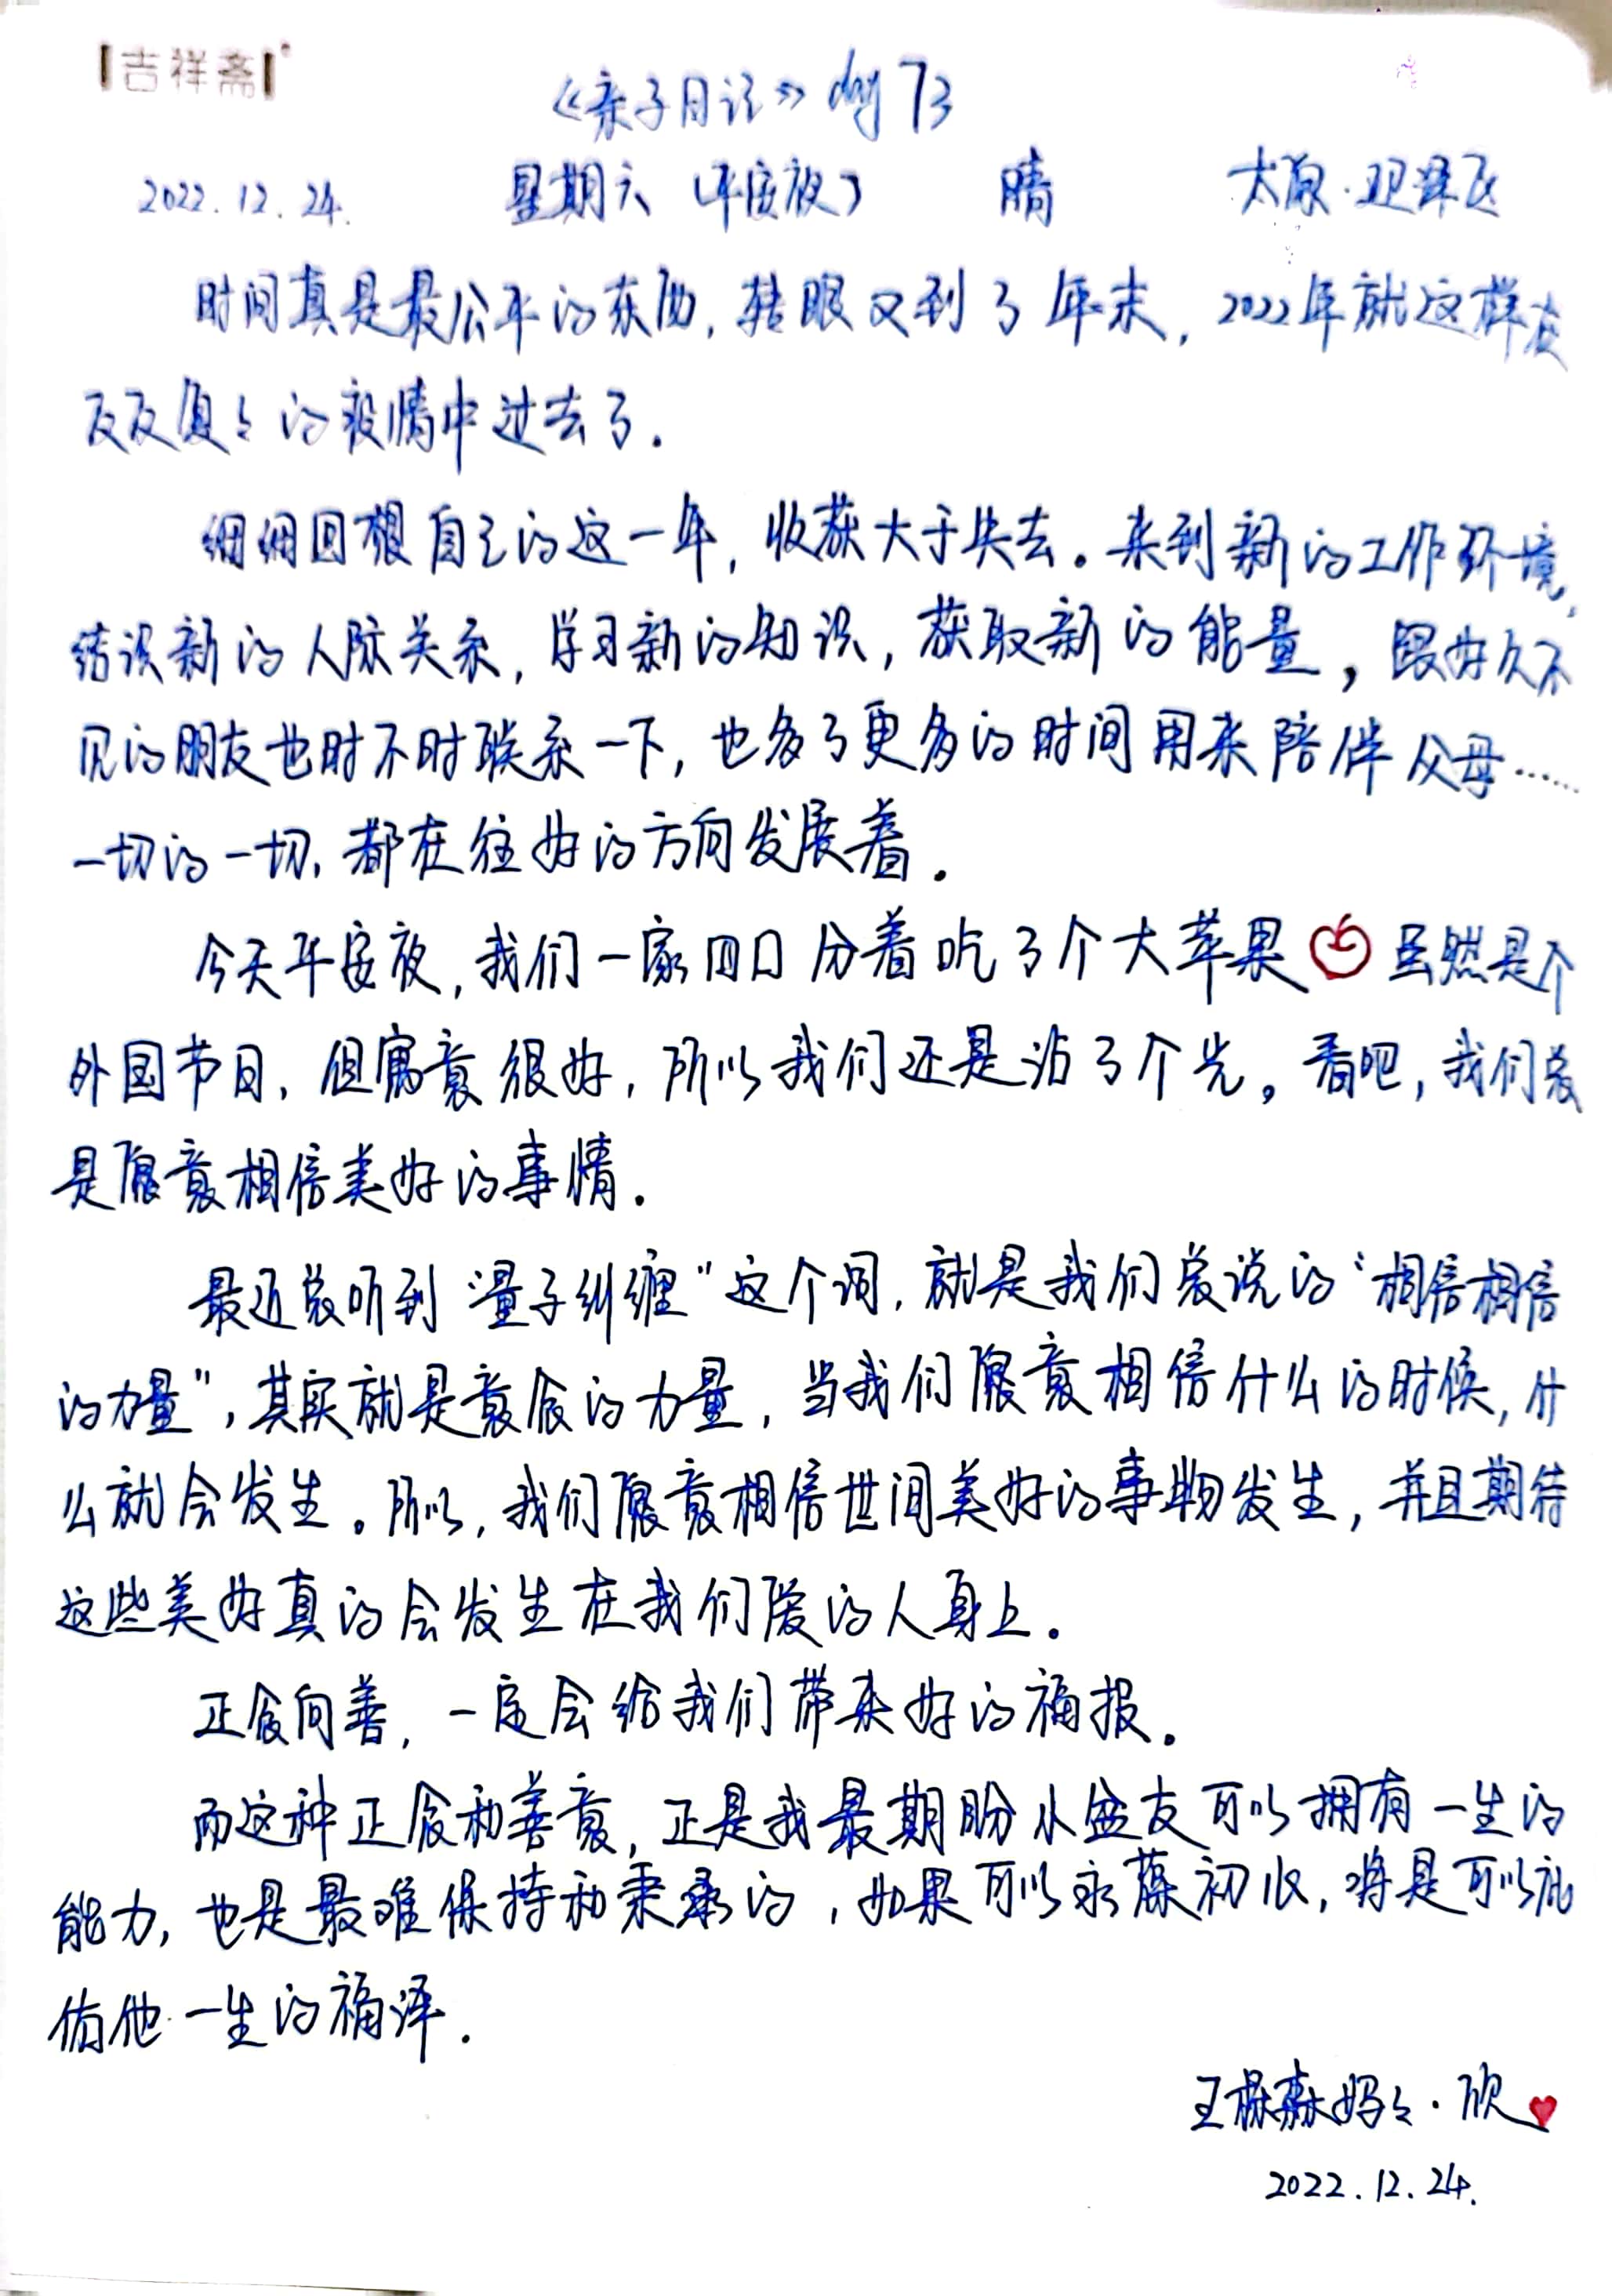 吉祥斋
《亲子日记》day 73
2022.12.24. 星期六(平安夜) 晴 太原·迎泽区
时间真是最公平的东西,转眼又到了年末,2022年就这样在
反反复々的疫情中过去了.
细细回想自己的这一年,收获大于失去。来到新的工作环境,
结识新的人脉关系,学习新的知识,获取新的能量,跟好久不
见的朋友也时不时联系一下,也多了更多的时间用来陪伴父母……
一切的一切,都在往好的方向发展着.
今天平安夜,我们一家四口分着吃了个大苹果 虽然是个
外国节日,但寓意很好,所以我们还是沾了个光。看吧,我们总
是愿意相信美好的事情.
最近总听到“量子纠缠”这个词,就是我们总说的“相信相信
的力量”,其实就是意念的力量,当我们愿意相信什么的时候,什
么就会发生。所以,我们愿意相信世间美好的事物发生,并且期待
这些美好真的会发生在我们爱的人身上.
正念向善,一定会给我们带来好的福报.
而这种正念和善意,正是我最期盼小盆友可以拥有一生的
能力,也是最难保持和秉承的,如果可以永葆初心,将是可以庇
佑他一生的福泽.
妈々·欣
2022.12.24.